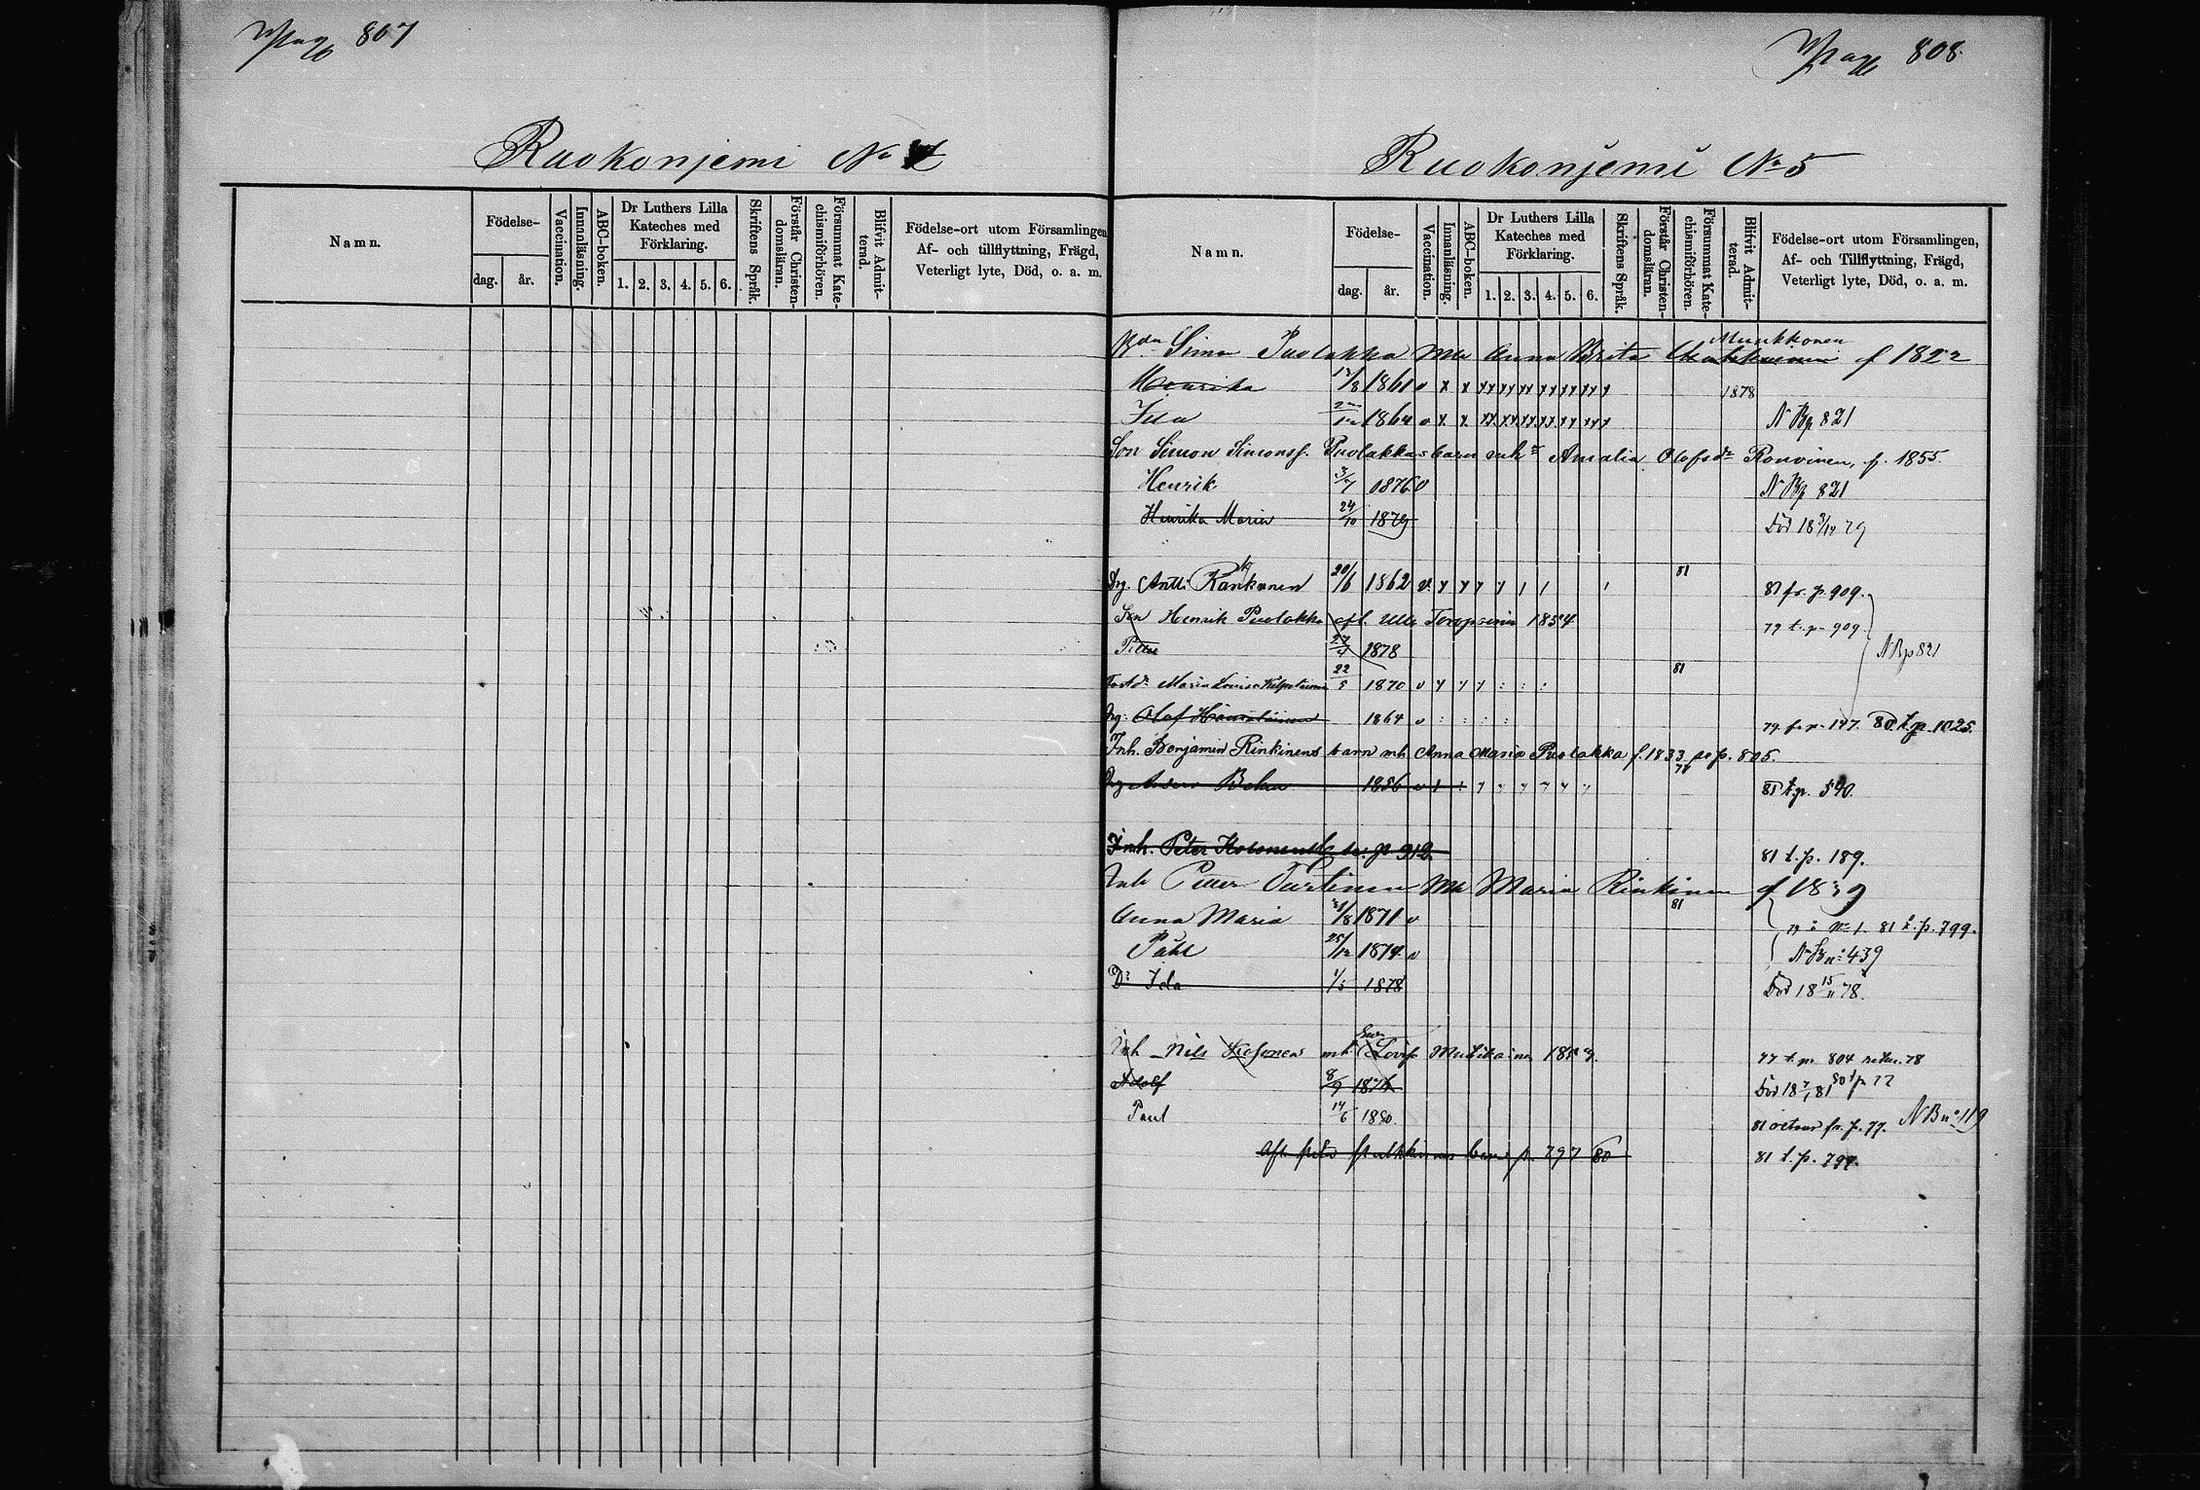 Pag 807
Ruokonjemi No 4
Namn.
Födelse-
dag.
år.
Vaccination.
Innanläsning.
ABC-boken.
Dr Luthers Lilla
Kateches med
Förklaring.
1. 2. 3. 4. 5. 6.
Skriftens Språk.
Förstår Christen-
domsläran.
Försummat Kate-
chismiförhören.
Blifvit Admit-
terad.
Födelse-ort utom Församlingen
Af- och tillflyttning, Frägd,
Veterligt lyte, Död, o. a. m.
Pag 808
Ruokonjemi No 5
Namn.
Födelse-
dag.
år.
Vaccination.
Innanläsning.
ABC-boken.
Dr Luthers Lilla
Kateches med
Förklaring.
1. 2. 3. 4. 5. 6.
Skriftens Språk.
Förstår Christen-
domsläran.
Försummat Kate-
chismiförhören.
Blifvit Admit-
terad.
Födelse-ort utom Församlingen,
Af- och Tillflyttning, Frägd,
Veterligt lyte, Död, o. a. m.
Simon Puolakka mh Anna Brita Muukkonen f 1822
Henrika 12/8 1861 v x x 1878
Ida 1864 v x x N Bp 821
Son Simon Simonss. Puolakkas barn mh Amalia Olofsdr Ronvinen, f. 1855
Henrik 3/7 1876 v N Bp 821
Henrika Maria 24/10 1879 Död 18 9/12 79
Drg. Antti Rankonen 20/6 1862 v 81 81 fr. p. 909.
Son Henrik Puolakka afl. Ulla Toropainen 1854 79 t. p. 909.
Petter 27/4 1878 N Bp 821
Maria Lovisa 22/5 1870 v 81
Drg. Olof Hämäläinen 1864 v 79 fr. p. 147. 80 t. p. 1025.
Inh. Benjamin Rinkinens barn mh Anna Maria Puolakka f. 1833 se p. 805.
Drg Anders Behm 1856 v 81 t. p. 590.
Inh. Peter se p. 912. 81 t. p. 189.
Inh Petter Turtinen Mh Maria Rinkinen f 1839
Anna Maria 21/8 1871 v 81 No 1. 81 t. p. 799.
Påhl 25/12 1874 v N B no 439
Dr Ida 1/5 1878 Död 18 15/11 78.
Inh Nils mh Lovisa 77 t. p. 804 retur. 78
Adolf 8/9 Död 18 81
Paul 14/6 1880. 81 retur fr. p. 77. N B no 119
barn p. 797 80 81 t. p. 799.